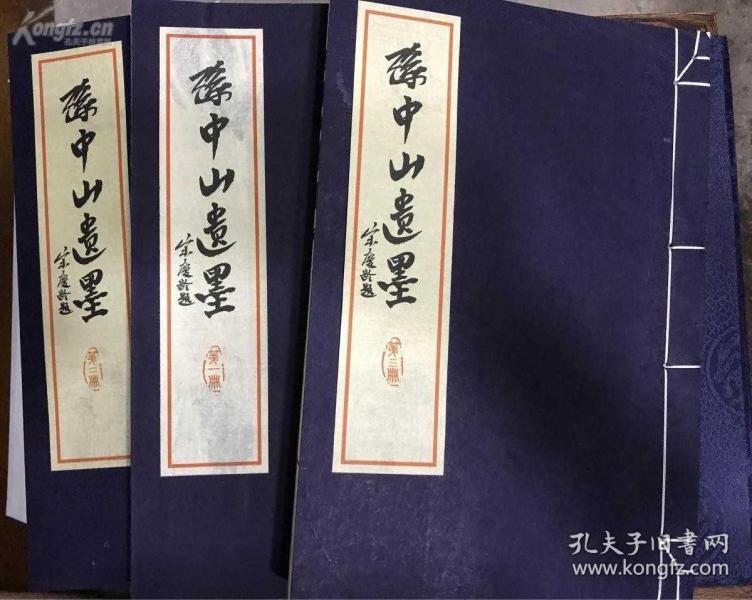 Kongfz.cn
孔夫子旧书网
孫中山遺墨
宋慶齡題
第二冊
孫中山遺墨
宋慶齡題
第一冊
孫中山遺墨
宋慶齡題
第三冊
孔夫子旧書网
www.kongfz.com